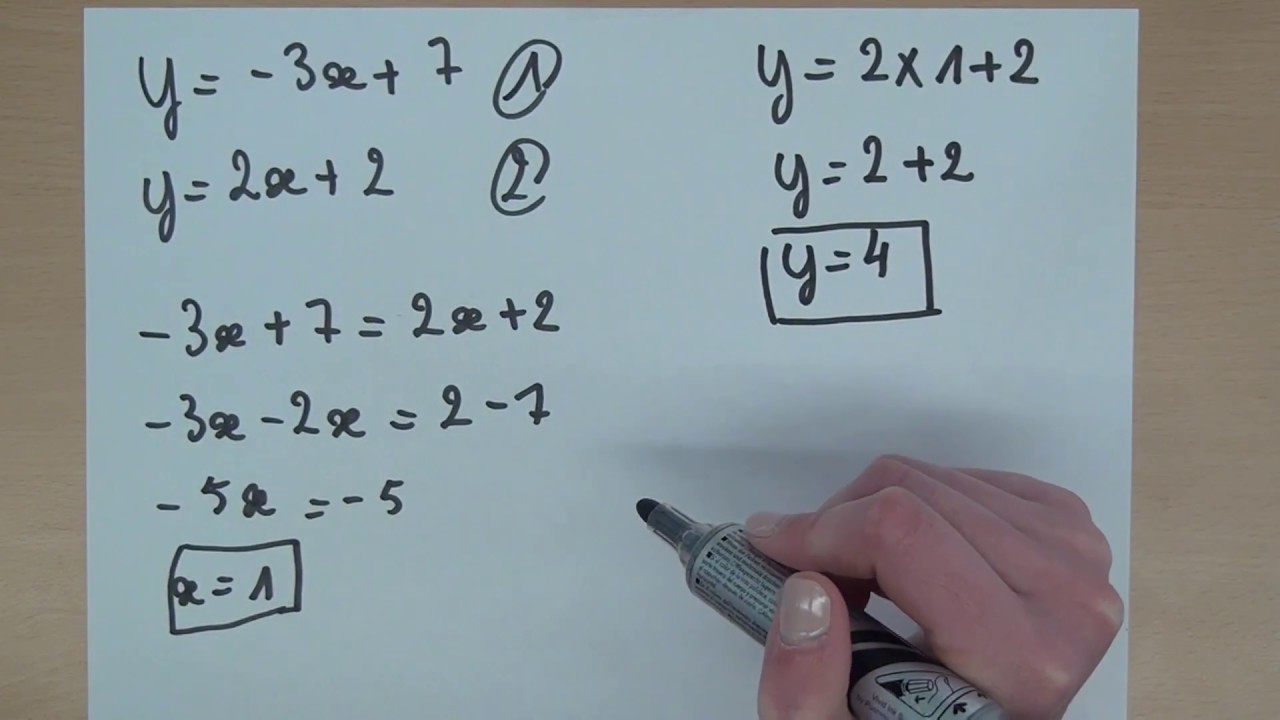 y = -3x + 7 ①
y = 2x + 2 ②
-3x + 7 = 2x + 2
-3x - 2x = 2 - 7
-5x = -5
x = 1
y = 2 × 1 + 2
y = 2 + 2
y = 4